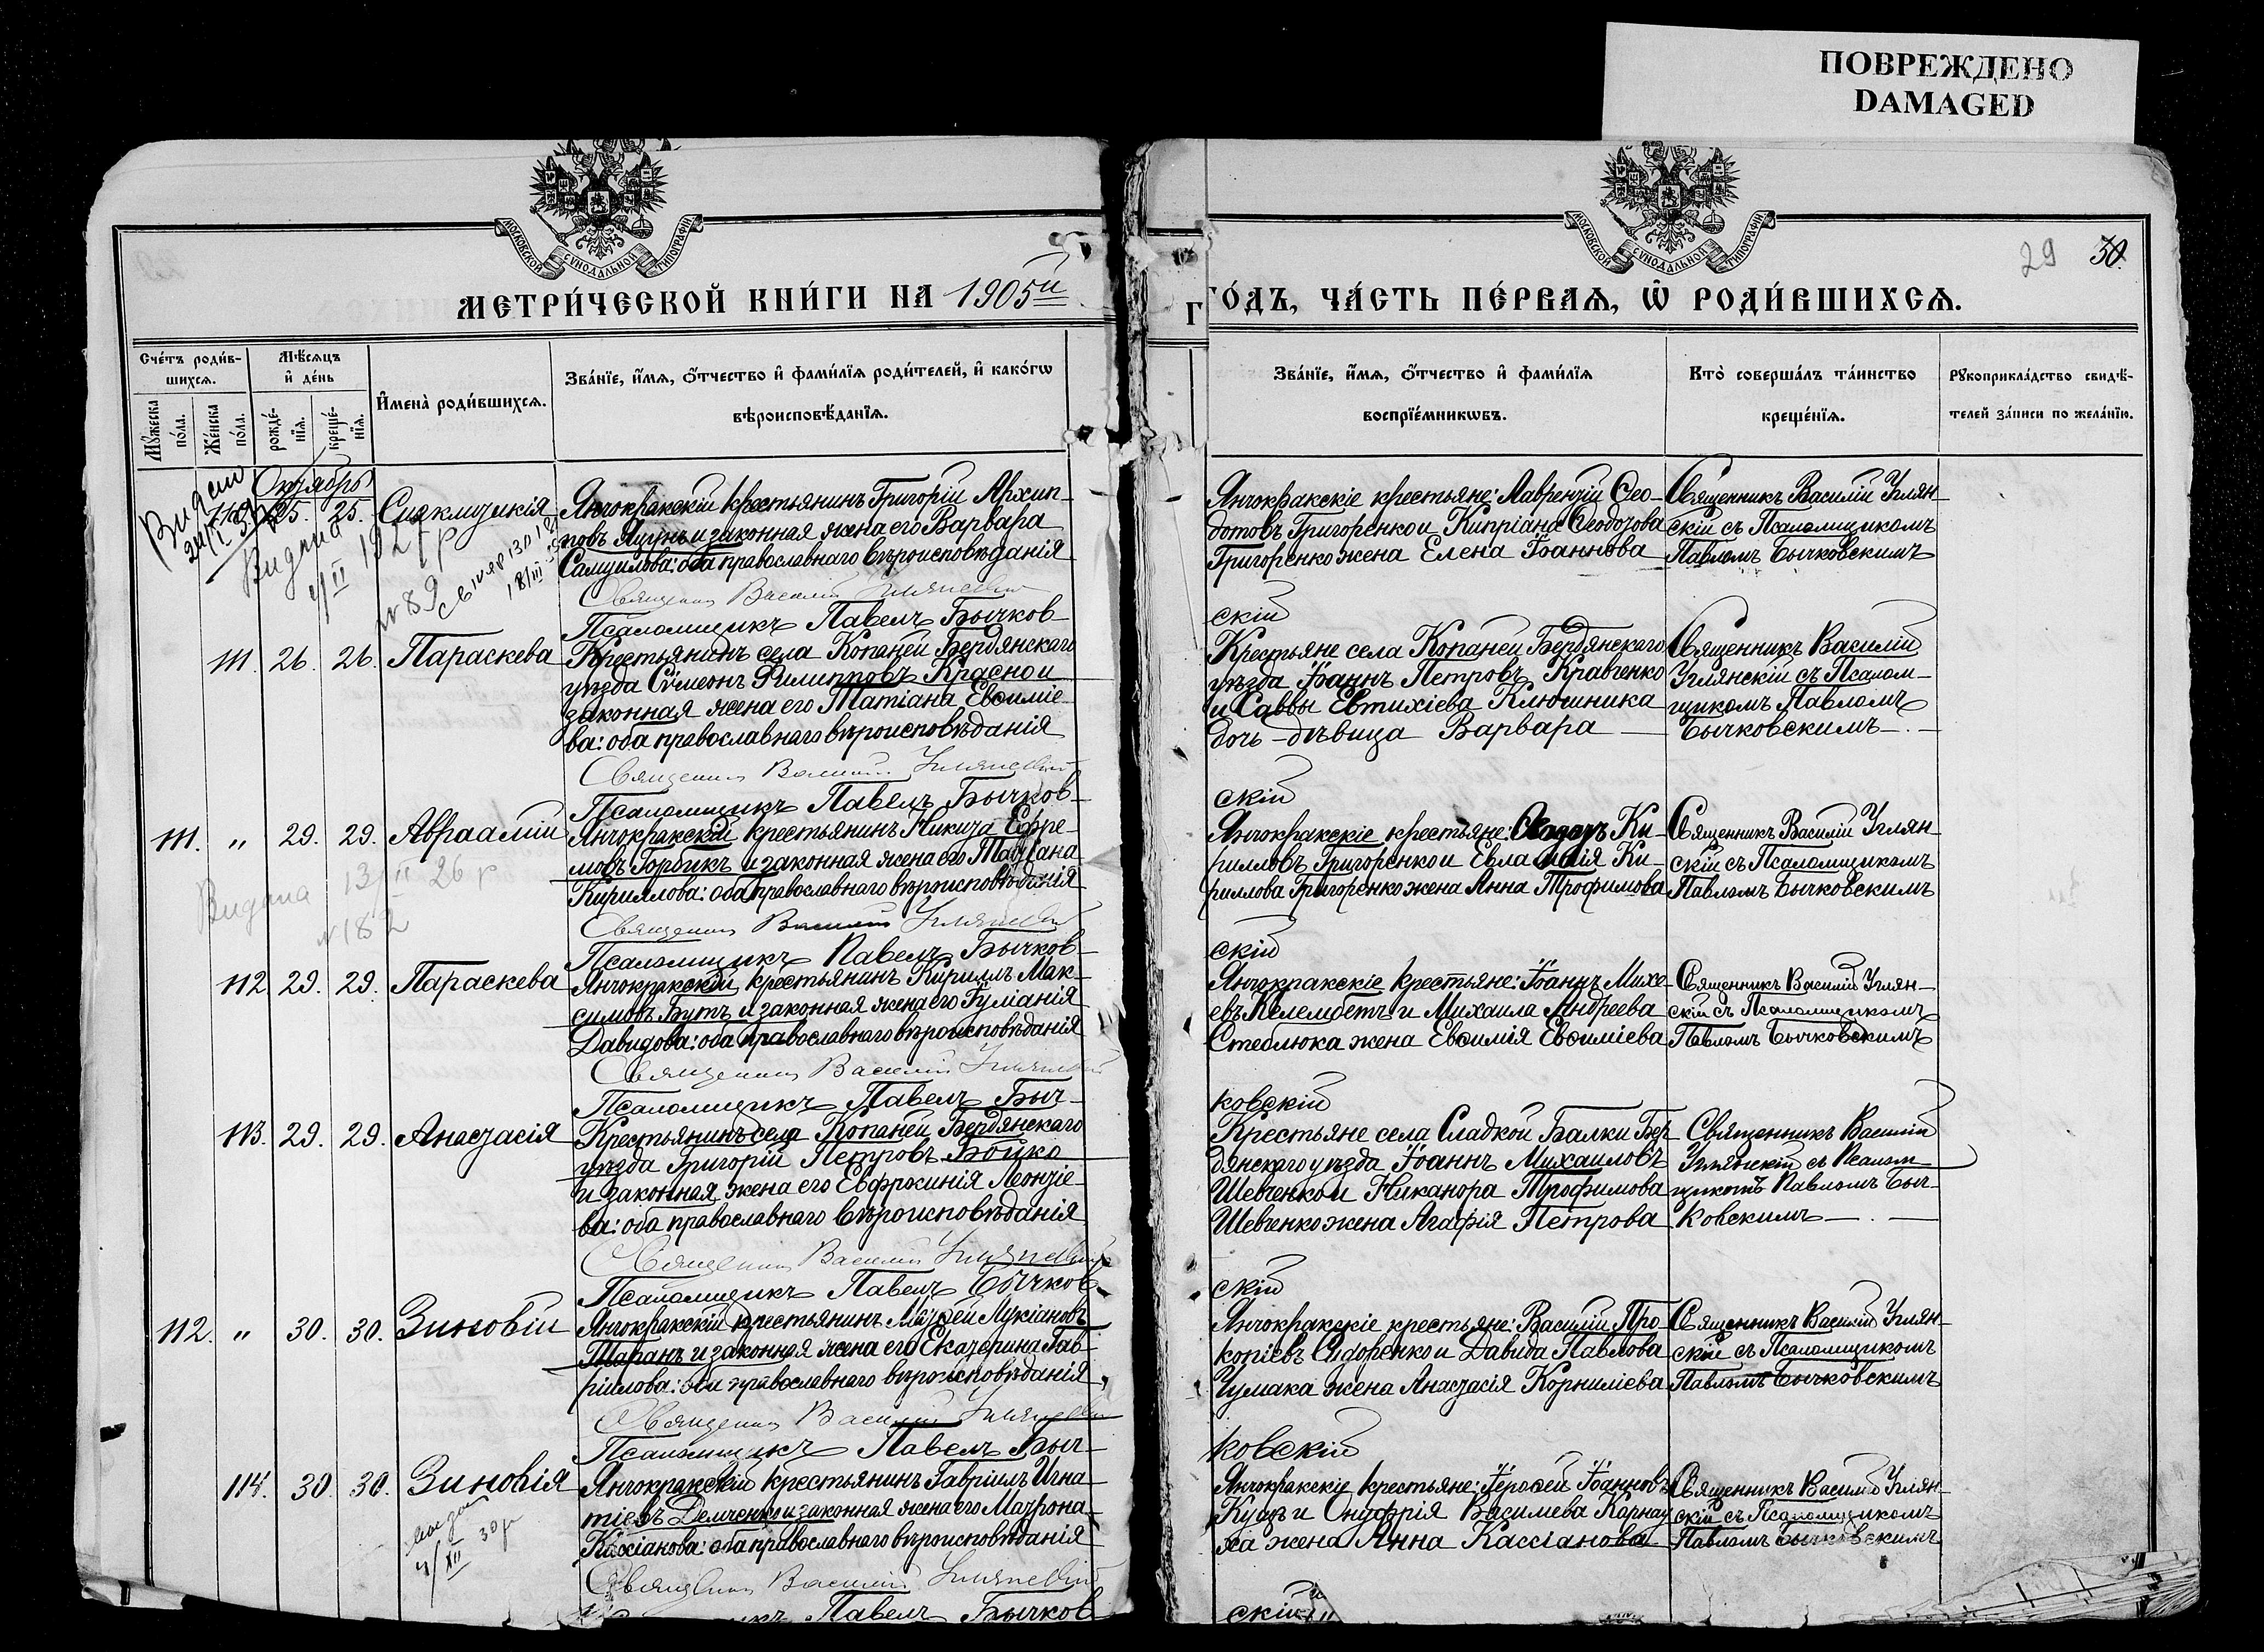 ПОВРЕЖДЕНО
DAMAGED
МОСКОВСКОЙ СѴНОДАЛЬНОЙ ТИПОГРАФІИ
МОСКОВСКОЙ СѴНОДАЛЬНОЙ ТИПОГРАФІИ
29 30.
МЕТРИ́ЧЕСКОЙ КНИ́ГИ НА 1905й
ГО́ДЪ, ЧА́СТЬ ПЕ́РВАЯ, Ѡ РОДИ́ВШИХСЯ.
Сче́тъ роди́в-
шихся.
Мѣсяцъ
и де́нь
Мꙋжеска по́ла.
Же́нска по́ла.
рожде́-
нія.
креще́-
нія.
Имена̀ роди́вшихся.
Зва́нїе, и́мя, о́тчество и фами́лїя роди́телей, и како́гѡ
вѣроисповѣ́данїя.
Зва́нїе, и́мя, о́тчество и фами́лїя
воспрїе́мникѡвъ.
Кто̀ соверша́лъ та́инство
креще́нїя.
Рꙋкоприкла́дство свидѣ́-
телей за́писи по жела́нїю.
Октябрь
25. 25. Синклитикія
Янчокракскій крестьянинъ Григорій Архип-
повъ Яцунъ и законная жена его Варвара
Самуилова: оба православнаго вѣроисповѣданія
Священникъ Василій Углянскій
Псаломщикъ Павелъ Бычков-
скій
Янчокракскіе крестьяне: Лаврентій Ѳео-
дотовъ Григоренко и Кипріана Ѳеодотова
Григоренко жена Елена Іоаннова
Священникъ Василій Углян-
скій съ Псаломщикомъ
Павломъ Бычковскимъ
Видана
4/II 1927 р
№ 89
18/III
111. 26. 26. Параскева
Крестьянинъ села Копаней Бердянскаго
уѣзда Сѵмеонъ Филипповъ Красно и
законная жена его Татіана Евѳиміе-
ва: оба православнаго вѣроисповѣданія
Священникъ Василій Углянскій
Псаломщикъ Павелъ Бычков-
скій
Крестьяне села Копаней Бердянскаго
уѣзда Іоаннъ Петровъ Кравченко
и Саввы Евтихіева Ключника
дочь-дѣвица Варвара
Священникъ Василій
Углянскій съ Псалом-
щикомъ Павломъ
Бычковскимъ
111. " 29. 29. Авраамій
Янчокракскій крестьянинъ Никита Ефре-
мовъ Горбикъ и законная жена его Татіана
Кириллова: оба православнаго вѣроисповѣданія
Священникъ Василій Углянскій
Псаломщикъ Павелъ Бычков-
скій
Янчокракскіе крестьяне: Ки-
рилловъ Григоренко и Евлампія Ки-
риллова Григоренко жена Анна Трофимова
Священникъ Василій Углян-
скій съ Псаломщикомъ
Павломъ Бычковскимъ
Видана 13/II 26 р
№ 182
112. 29. 29. Параскева
Янчокракскій крестьянинъ Кириллъ Мак-
симовъ Бутъ и законная жена его Іуліанія
Давидова: оба православнаго вѣроисповѣданія
Священникъ Василій Углянскій
Псаломщикъ Павелъ Быч-
ковскій
Янчокракскіе крестьяне: Іоаннъ Михе-
евъ Келембетъ и Михаила Андреева
Стеблюка жена Евѳимія Евѳиміева
Священникъ Василій Углян-
скій съ Псаломщикомъ
Павломъ Бычковскимъ
113. 29. 29. Анастасія
Крестьянинъ села Копаней Бердянскаго
уѣзда Григорій Петровъ Бойко
и законная жена его Евфросинія Леонтіе-
ва: оба православнаго вѣроисповѣданія
Священникъ Василій Углянскій
Псаломщикъ Павелъ Бычков-
скій
Крестьяне села Сладкой Балки Бер-
дянскаго уѣзда Іоаннъ Михаиловъ
Шевченко и Никанора Трофимова
Шевченко жена Агафія Петрова
Священникъ Василій
Углянскій съ Псалом-
щикомъ Павломъ Быч-
ковскимъ
112. " 30. 30. Зиновій
Янчокракскій крестьянинъ Матѳей Лукіановъ
Таранъ и законная жена его Екатерина Гав-
ріилова: оба православнаго вѣроисповѣданія
Священникъ Василій Углянскій
Псаломщикъ Павелъ Быч-
ковскій
Янчокракскіе крестьяне: Василій Про-
копіевъ Сидоренко и Давида Павлова
Чумака жена Анастасія Корниліева
Священникъ Василій Углян-
скій съ Псаломщикомъ
Павломъ Бычковскимъ
114. 30. 30. Зиновія
Янчокракскій крестьянинъ Гавріилъ Игна-
тіевъ Демченко и законная жена его Матрона
Кассіанова: оба православнаго вѣроисповѣданія
Священникъ Василій Углянскій
Павелъ Бычков-
скій
Янчокракскіе крестьяне: Іероѳей Іоанновъ
Куцъ и Онуфрія Василіева Карнау-
ха жена Анна Кассіанова
Священникъ Василій Углян-
скій съ Псаломщикомъ
Павломъ Бычковскимъ
4/XII 30 р